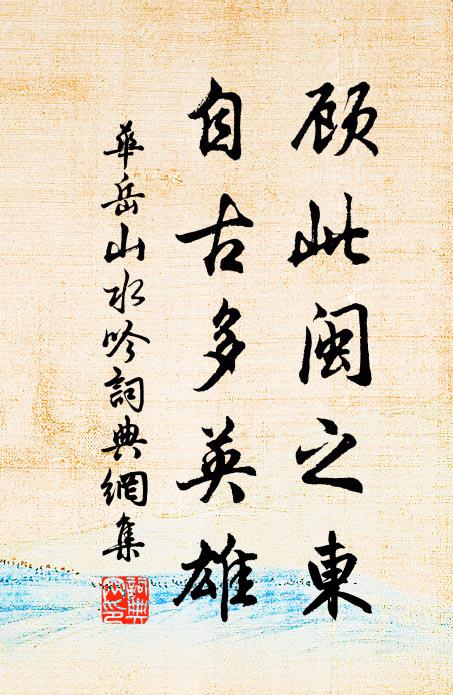 顾此闽之東
自古多英雄
華岳山水吟詞典網集